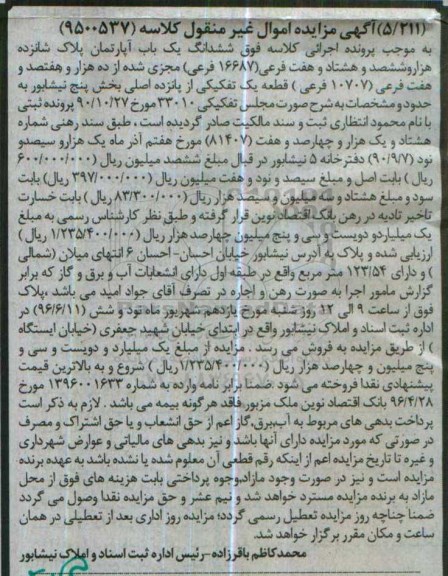 (۵/۲۱۱) آگهی مزایده اموال غیر منقول کلاسه (۹۵۰۰۵۳۷)
به موجب پرونده اجرائی کلاسه فوق ششدانگ یک باب آپارتمان پلاک شانزده
هزاروششصد و هشتاد و هفت فرعی(۱۶۶۸۷ فرعی) مجزی شده از ده هزار و هفتصد و
هفت فرعی (۱۰۷۰۷ فرعی) قطعه یک تفکیکی از پانزده اصلی بخش پنج نیشابور به
حدود و مشخصات به شرح صورت مجلس تفکیکی ۳۳۰۱۰ مورخ ۹۰/۱۰/۲۷ پرونده ثبتی
با نام محمود انتظاری ثبت و سند مالکیت صادر گردیده است ، طبق سند رهنی شماره
هشتاد و یک هزار و چهارصد و هفت (۸۱۴۰۷) مورخ هفتم آذر ماه یک هزارو سیصدو
نود (۹۰/۹/۷) دفترخانه ۵ نیشابور در قبال مبلغ ششصد میلیون ریال (۶۰۰/۰۰۰/۰۰۰
ریال ) بابت اصل و مبلغ سیصد و نود و هفت میلیون ریال (۳۹۷/۰۰۰/۰۰۰ ریال) بابت
سود و مبلغ هشتاد و سه میلیون و سیصد هزار ریال (۸۳/۳۰۰/۰۰۰ ریال ) بابت خسارت
تاخیر تادیه در رهن بانک اقتصاد نوین قرار گرفته و طبق نظر کارشناس رسمی به مبلغ
یک میلیاردو دویست و سی و پنج میلیون چهارصد هزار ریال (۱/۲۳۵/۴۰۰/۰۰۰ ریال )
ارزیابی شده و پلاک به آدرس نیشابور خیابان احسان- احسان ۶ انتهای میلان (شمالی
) و دارای ۱۲۳/۵۴ متر مربع واقع در طبقه اول دارای انشعابات آب و برق و گاز که برابر
گزارش مامور اجرا به صورت رهن و اجاره در تصرف آقای جواد امید می باشد ،پلاک
فوق از ساعت ۹ الی ۱۲ روز شنبه مورخ یازدهم شهریور ماه نود و شش (۹۶/۶/۱۱) در
اداره ثبت اسناد و املاک نیشابور واقع در ابتدای خیابان شهید جعفری (خیابان ایستگاه
) از طریق مزایده به فروش می رسد . مزایده از مبلغ یک میلیارد و دویست و سی و
پنج میلیون و چهارصد هزار ریال (۱/۲۳۵/۴۰۰/۰۰۰ ریال ) شروع و به بالاترین قیمت
پیشنهادی نقدا فروخته می شود .ضمنا برابر نامه وارده به شماره ۱۳۹۶۰۰۱۶۳۳ مورخ
۹۶/۴/۲۸ بانک اقتصاد نوین ملک مزبور فاقد هر گونه بیمه می باشد . لازم به ذکر است
پرداخت بدهی های مربوط به آب،برق،گاز اعم از حق انشعاب و یا حق اشتراک و مصرف
در صورتی که مورد مزایده دارای آنها باشد و نیز بدهی های مالیاتی و عوارض شهرداری
و غیره تا تاریخ مزایده اعم از اینکه رقم قطعی آن معلوم شده یا نشده باشد به عهده برنده
مزایده است و نیز در صورت وجود مازاد،وجوه پرداختی بابت هزینه های فوق از محل
مازاد به برنده مزایده مسترد خواهد شد و نیم عشر و حق مزایده نقدا وصول می گردد
ضمنا چناچه روز مزایده تعطیل رسمی گردد؛ مزایده روز اداری بعد از تعطیلی در همان
ساعت و مکان مقرر برگزار خواهد شد.
محمدکاظم باقرزاده -رئیس اداره ثبت اسناد و املاک نیشابور